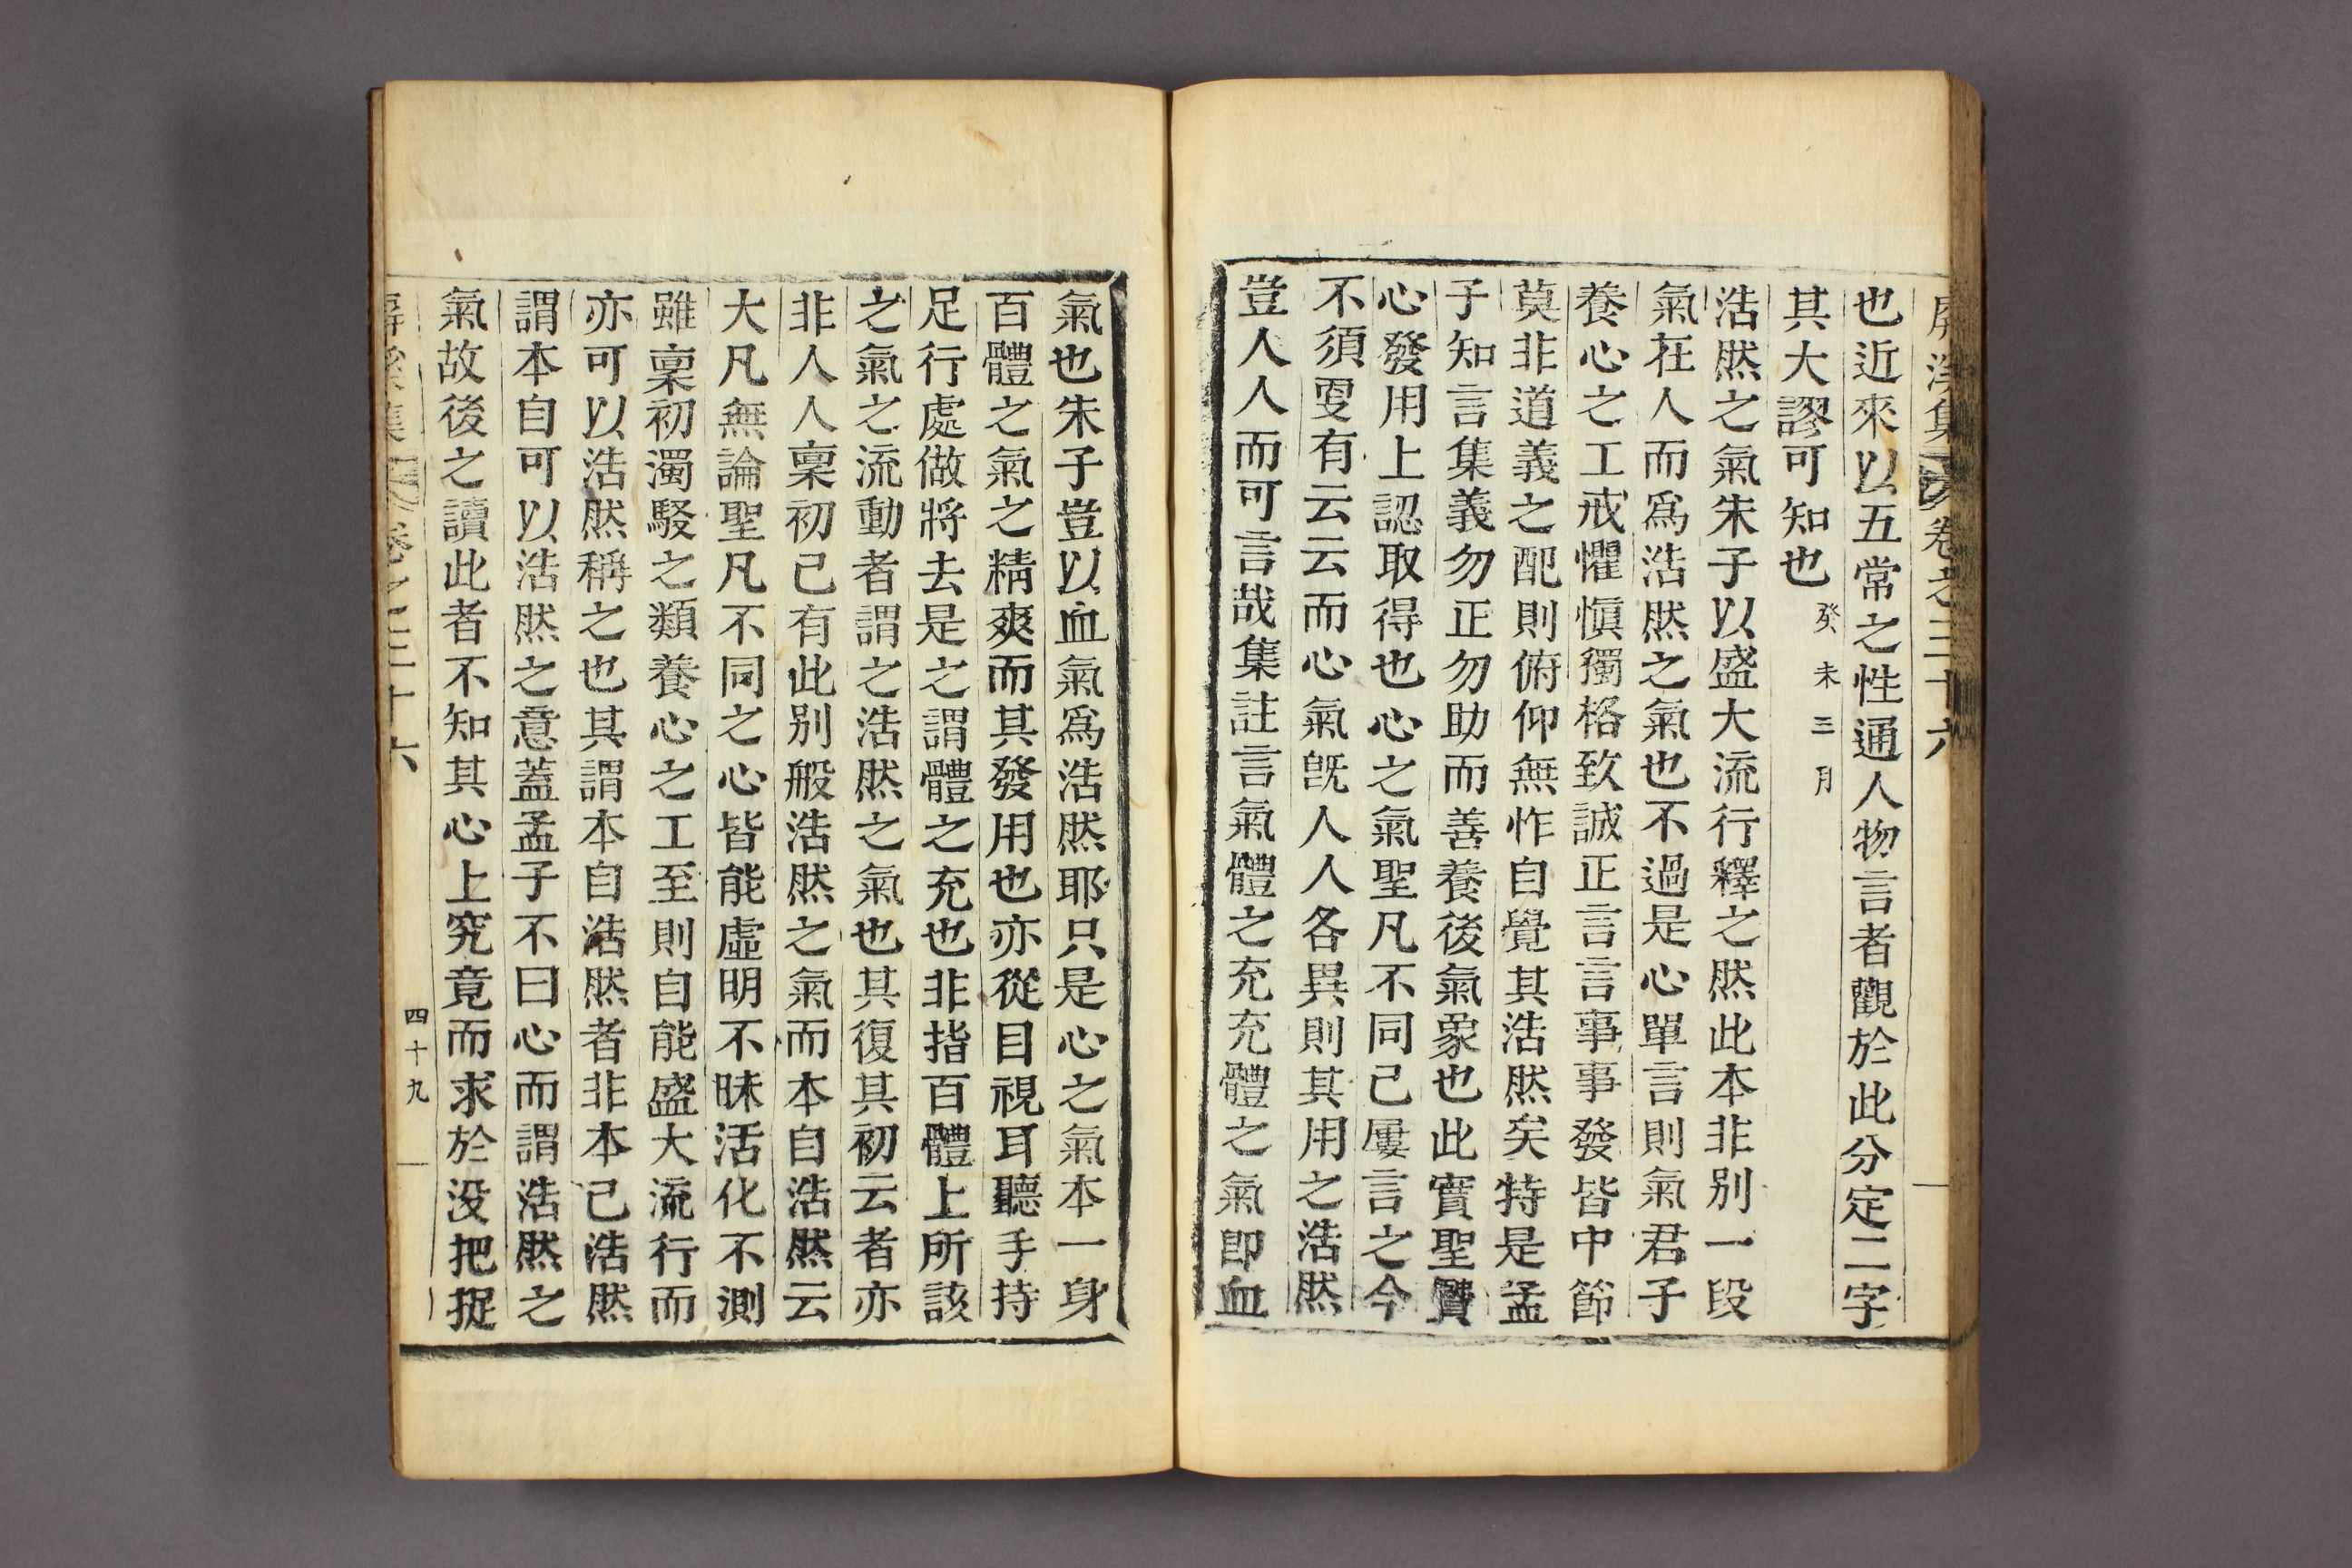 屏溪集 卷之三十六
也近來以五常之性通人物言者觀於此分定二字
其大謬可知也 癸未三月
浩然之氣朱子以盛大流行釋之然此本非別一段
氣在人而爲浩然之氣也不過是心單言則氣君子
養心之工戒懼愼獨格致誠正言言事事發皆中節
莫非道義之配則俯仰無怍自覺其浩然矣特是孟
子知言集義勿正勿助而善養後氣象也此實聖贒
心發用上認取得也心之氣聖凡不同已屢言之今
不須更有云云而心氣旣人人各異則其用之浩然
豈人人而可言哉集註言氣體之充充體之氣卽血
氣也朱子豈以血氣爲浩然耶只是心之氣本一身
百體之氣之精爽而其發用也亦從目視耳聽手持
足行處做將去是之謂體之充也非指百體上所該
之氣之流動者謂之浩然之氣也其復其初云者亦
非人人稟初已有此別般浩然之氣而本自浩然云
大凡無論聖凡不同之心皆能虛明不昧活化不測
雖稟初濁駁之類養心之工至則自能盛大流行而
亦可以浩然稱之也其謂本自浩然者非本已浩然
謂本自可以浩然之意蓋孟子不曰心而謂浩然之
氣故後之讀此者不知其心上究竟而求於没把捉
屏溪集 卷之三十六 四十九